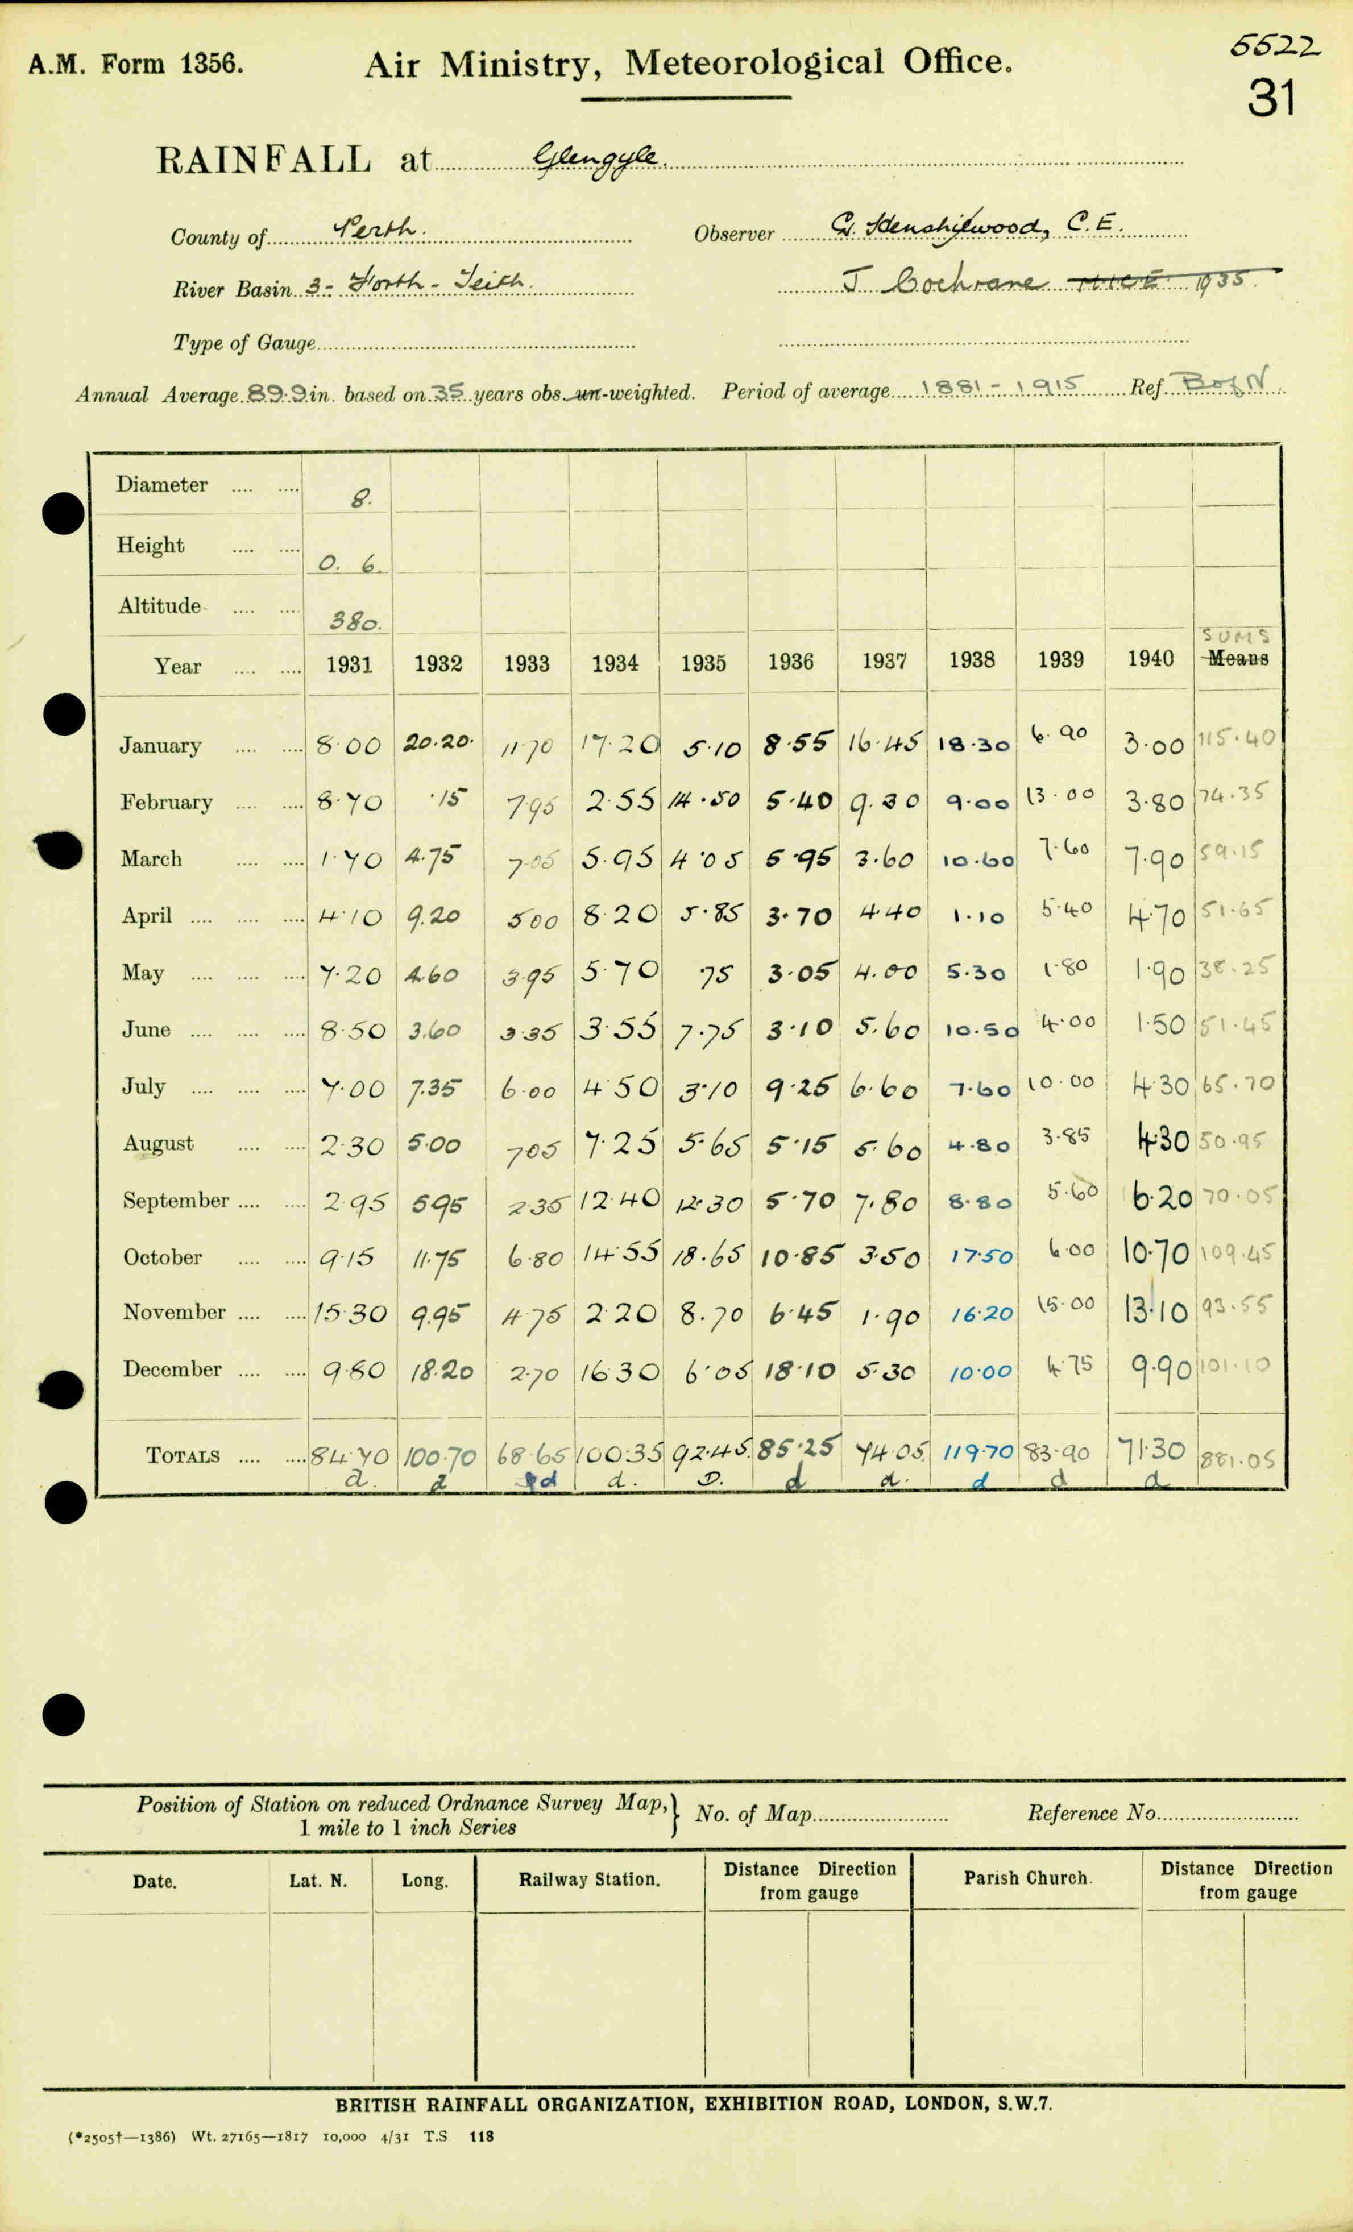 A.M. Form 1356.
Air Ministry, Meteorological Office.
5522
31
RAINFALL at Glengyle.
County of Perth. Observer G. Henshilwood, C.E.
River Basin 3- Forth - Teith. J Cochrane M.I.C.E. 1935.
Type of Gauge
Annual Average 89.9 in. based on 35 years obs. un-weighted. Period of average 1881-1915 Ref. B of N
Diameter 8.
Height 0. 6.
Altitude 380.
SUMS
Year 1931 1932 1933 1934 1935 1936 1937 1938 1939 1940 Means
January 8.00 20.20. 11.70 17.20 5.10 8.55 16.45 18.30 6.90 3.00 115.40
February 8.70 .15 7.95 2.55 14.50 5.40 9.30 9.00 13.00 3.80 74.35
March 1.70 4.75 7.05 5.95 4.05 5.95 3.60 10.60 7.60 7.90 59.15
April 4.10 9.20 5.00 8.20 5.85 3.70 4.40 1.10 5.40 4.70 51.65
May 7.20 4.60 3.95 5.70 .75 3.05 4.00 5.30 1.80 1.90 38.25
June 8.50 3.60 3.35 3.55 7.75 3.10 5.60 10.50 4.00 1.50 51.45
July 7.00 7.35 6.00 4.50 3.10 9.25 6.60 7.60 10.00 4.30 65.70
August 2.30 5.00 7.05 7.25 5.65 5.15 5.60 4.80 3.85 4.30 50.95
September 2.95 5.95 2.35 12.40 12.30 5.70 7.80 8.80 5.60 6.20 70.05
October 9.15 11.75 6.80 14.55 18.65 10.85 3.50 17.50 6.00 10.70 109.45
November 15.30 9.95 4.75 2.20 8.70 6.45 1.90 16.20 15.00 13.10 93.55
December 9.80 18.20 2.70 16.30 6.05 18.10 5.30 10.00 4.75 9.90 101.10
TOTALS 84.70 100.70 68.65 100.35 92.45. 85.25 74.05. 119.70 83.90 71.30 881.05
d. d d d. D. d d. d d d
Position of Station on reduced Ordnance Survey Map,} No. of Map Reference No.
1 mile to 1 inch Series
Date. Lat. N. Long. Railway Station. Distance Direction from gauge Parish Church. Distance Direction from gauge
BRITISH RAINFALL ORGANIZATION, EXHIBITION ROAD, LONDON, S.W.7.
(*2505†—1386) Wt. 27165—1817 10,000 4/31 T.S 118